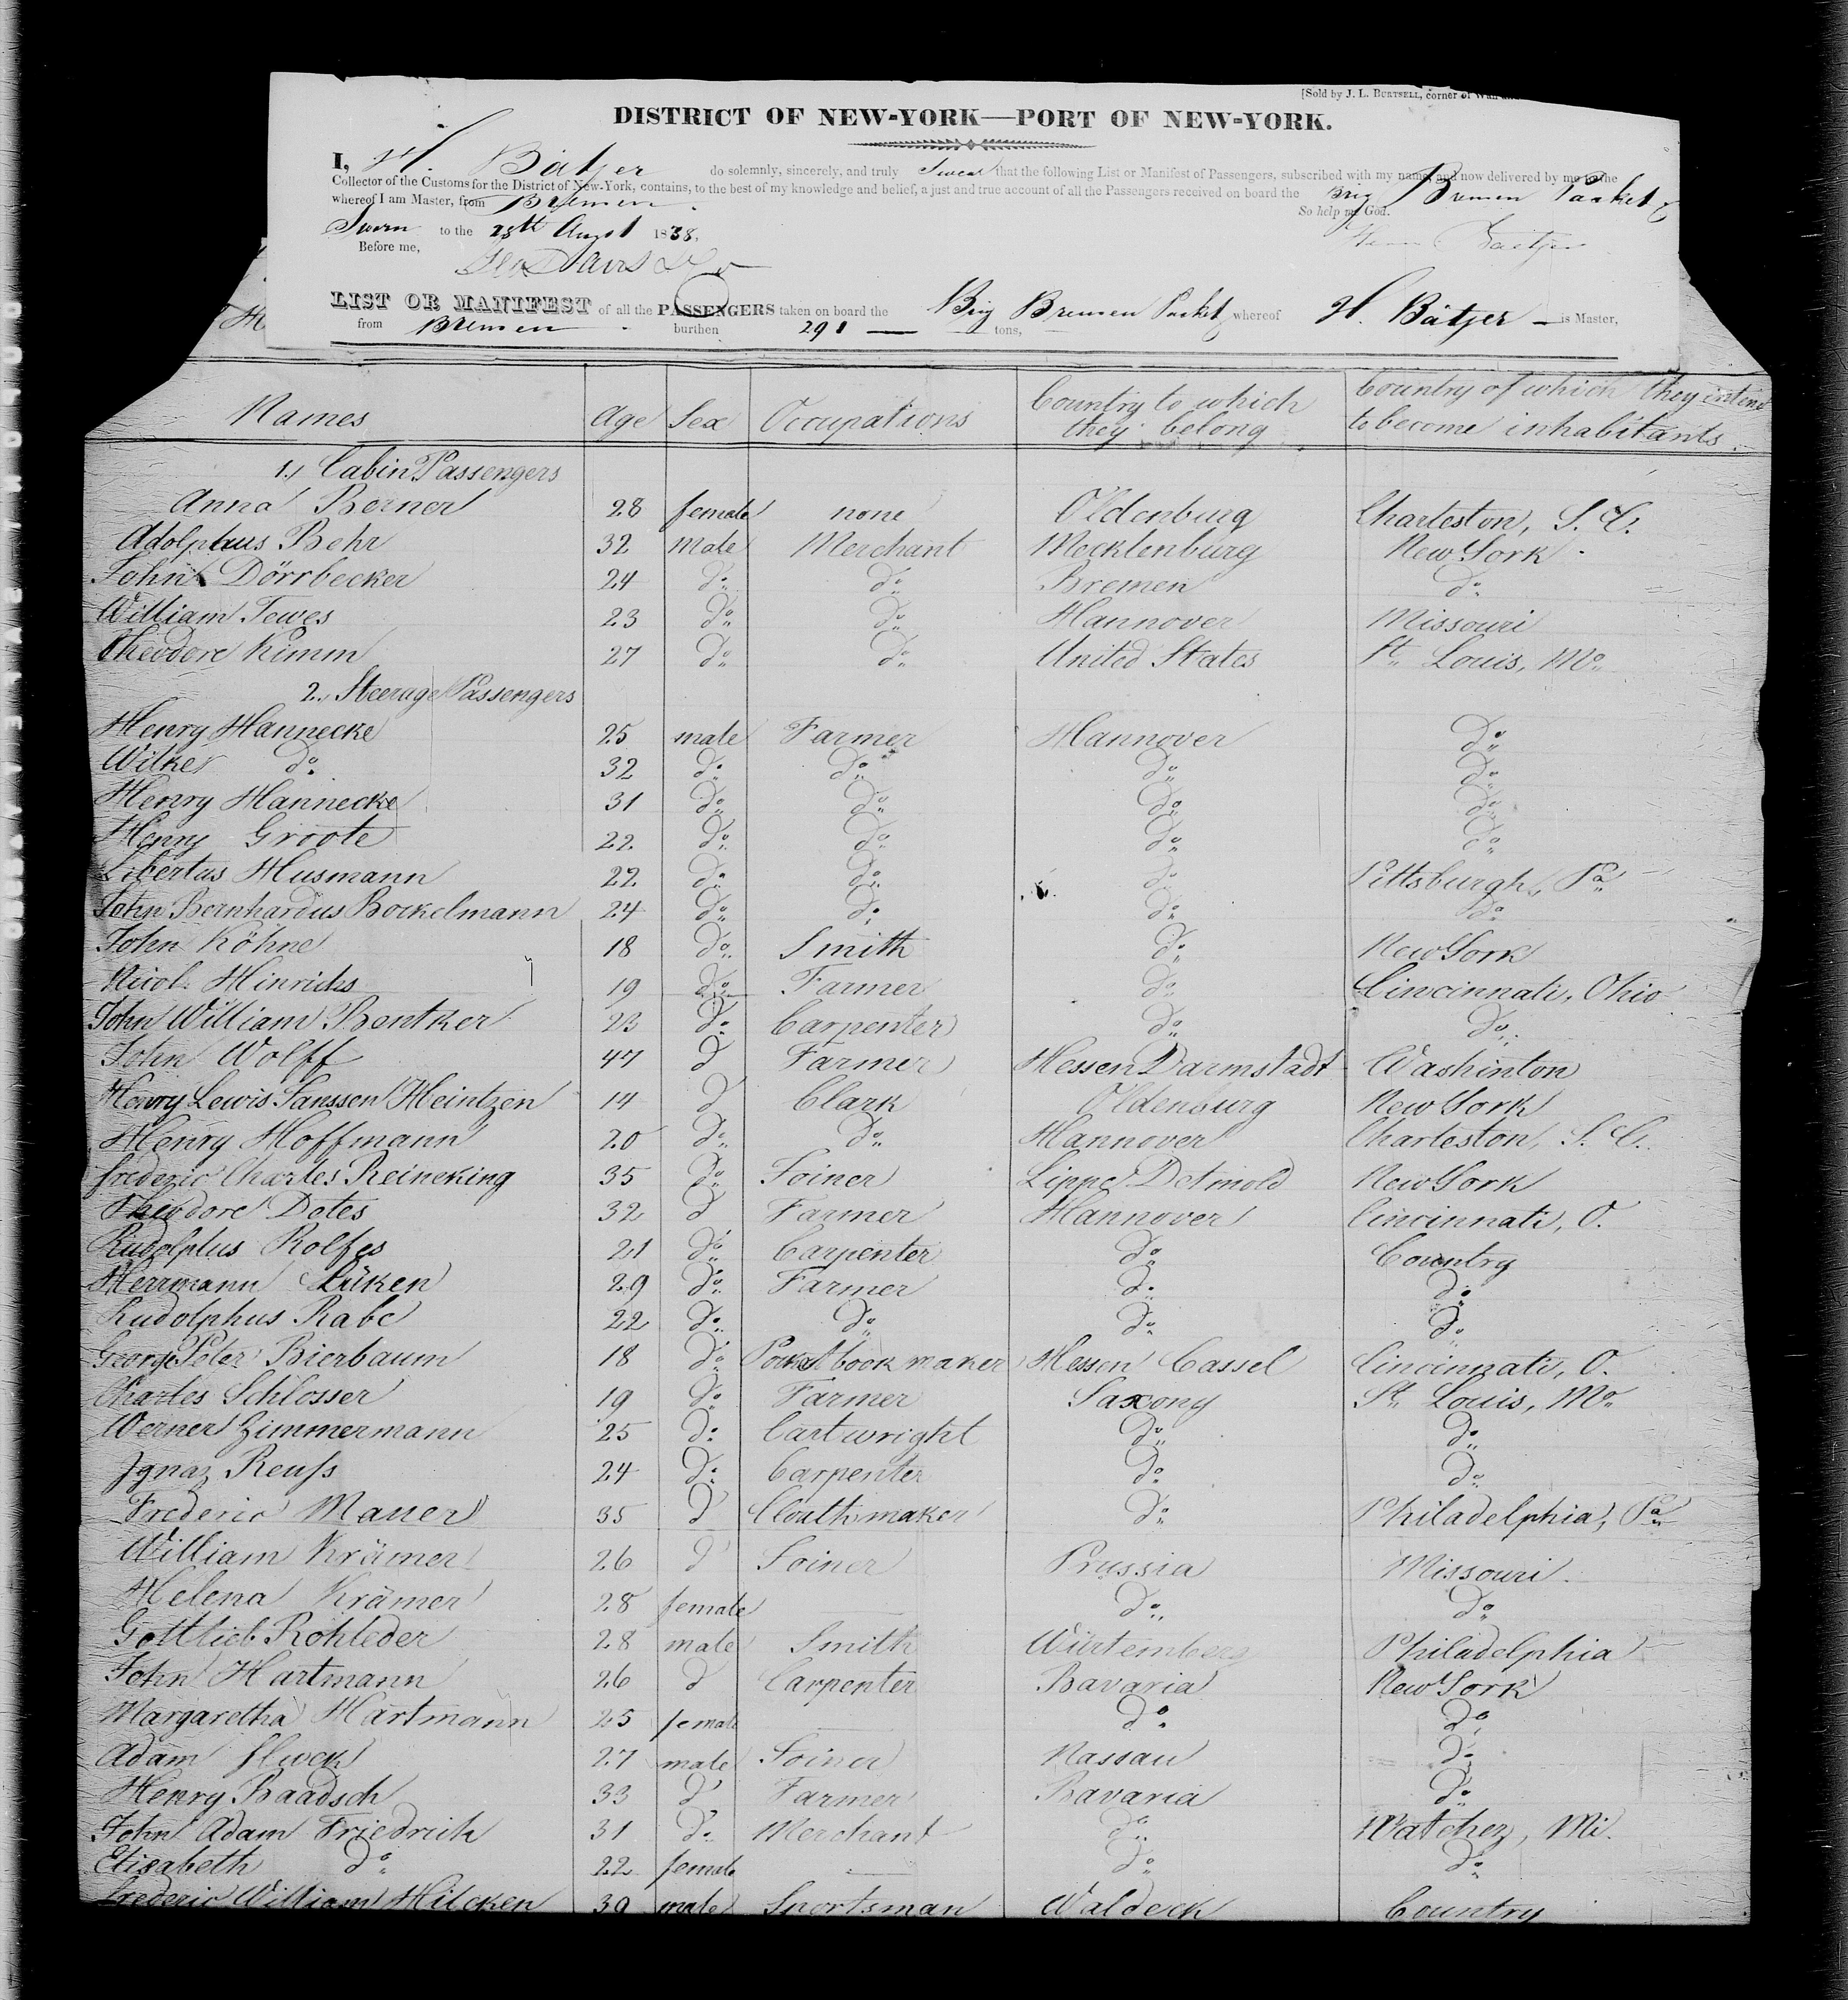 [Sold by J. L. BURTSELL, corner of Wall
DISTRICT OF NEW-YORK—PORT OF NEW-YORK.
I, H. Bätjer do solemnly, sincerely, and truly Swear that the following List or Manifest of Passengers, subscribed with my name, and now delivered by me to the
Collector of the Customs for the District of New-York, contains, to the best of my knowledge and belief, a just and true account of all the Passengers received on board the Brig Bremen Packet
whereof I am Master, from Bremen. So help me God.
Sworn to the 28th August 1838.
Before me,
LIST OR MANIFEST of all the PASSENGERS taken on board the Brig Bremen Packet whereof H. Bätjer is Master,
from Bremen burthen 291 tons,
Names Age Sex Occupations Country to which they belong Country of which they intend to become inhabitants
1., Cabin Passengers
Anna Berner 28 female none Oldenburg Charleston, S. C.
Adolphus Behr 32 male Merchant Mecklenburg New York
John Dörrbecker 24 do do Bremen do
William Tewes 23 do do Hannover Missouri
Theodore Kimm 27 do do United States St. Louis, Mo
2., Steerage Passengers
Henry Hannecke 25 male Farmer Hannover do
Wilke do 32 do do do do
Henry Hannecke 31 do do do do
Henry Groote 22 do do do do
Libertus Husmann 22 do do do Pittsburgh, Pa
John Bernhardus Bockelmann 24 do do do do
John Köhne 18 do Smith do New York
Nicol. Hinrichs 19 do Farmer do Cincinnati, Ohio
John William Bentker 23 do Carpenter do do
John Wolff 47 d Farmer Hessen Darmstadt Washinton
Henry Lewis Janssen Heintzen 14 d Clark Oldenburg New York
Henry Hoffmann 20 do do Hannover Charleston, S. C.
Frederic Charles Reineking 35 do Joiner Lippe Detmold New York
Theodore Dotes 32 d Farmer Hannover Cincinnati, O.
Rudolplus Rolfes 21 do Carpenter do Country
Herrmann Lüken 29 do Farmer do do
Rudolphus Rabe 22 do do do do
George Peter Bierbaum 18 do Pocketbook maker Hessen Cassel Cincinnati, O.
Charles Schlosser 19 do Farmer Saxony St. Louis, Mo
Werner Zimmermann 25 do Cartwright do do
Ignaz Reuss 24 do Carpenter do do
Frederic Mauer 35 d Clouthmaker do Philadelphia, Pa
William Krämer 26 d Joiner Prussia Missouri
Helena Krämer 28 female do do
Gottlieb Rohleder 28 male Smith Würtemberg Philadelphia
John Hartmann 26 d Carpenter Bavaria New York
Margaretha Hartmann 25 female do do
Adam 27 male Joiner Nassau do
Henry Baadsch 33 d Farmer Bavaria do
John Adam Friedrich 31 do Merchant do Natchez, Mi.
Elisabeth do 22 female do do
Frederic William Hilcken 39 male Sportsman Waldeck Country